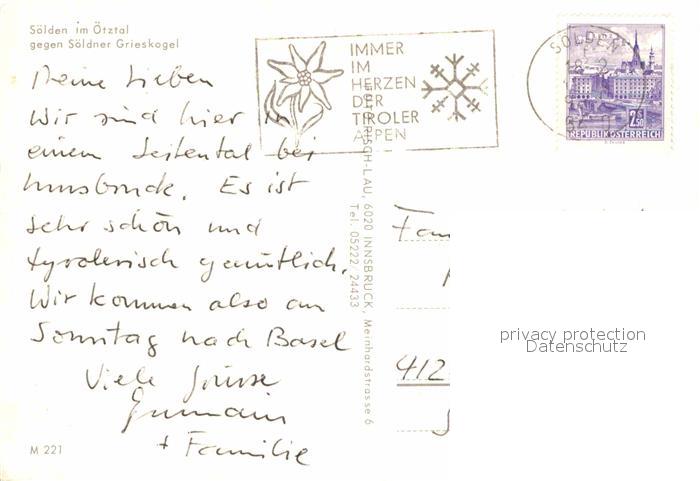 Sölden im Ötztal
gegen Söldner Grieskogel
IMMER
IM
HERZEN
DER
TIROLER
ALPEN
SÖLDEN
2.50
REPUBLIK ÖSTERREICH
Meine Lieben
Wir sind hier in
einem Seitental bei
Innsbruck. Es ist
sehr schön und
tyrolerisch gemütlich.
Wir kommen also am
Sonntag nach Basel
Viele Grüsse
+ Familie
M 221
RISCH-LAU, 6020 INNSBRUCK, Meinhardstrasse 6
Tel. 05222/24433
Fam
412
privacy protection
Datenschutz